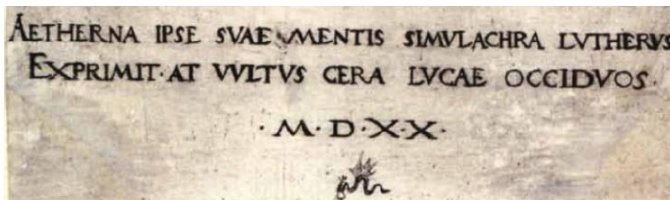 AETHERNA IPSE SVAE MENTIS SIMVLACHRA LVTHERVS
EXPRIMIT·AT VVLTVS CERA LVCAE OCCIDVOS·
·M·D·X·X·